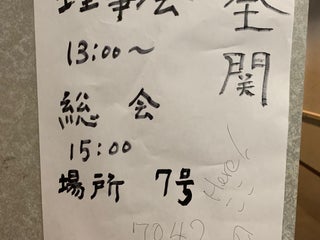 全関
理事会
13:00〜
総会
15:00
場所 7号
Here!
7042